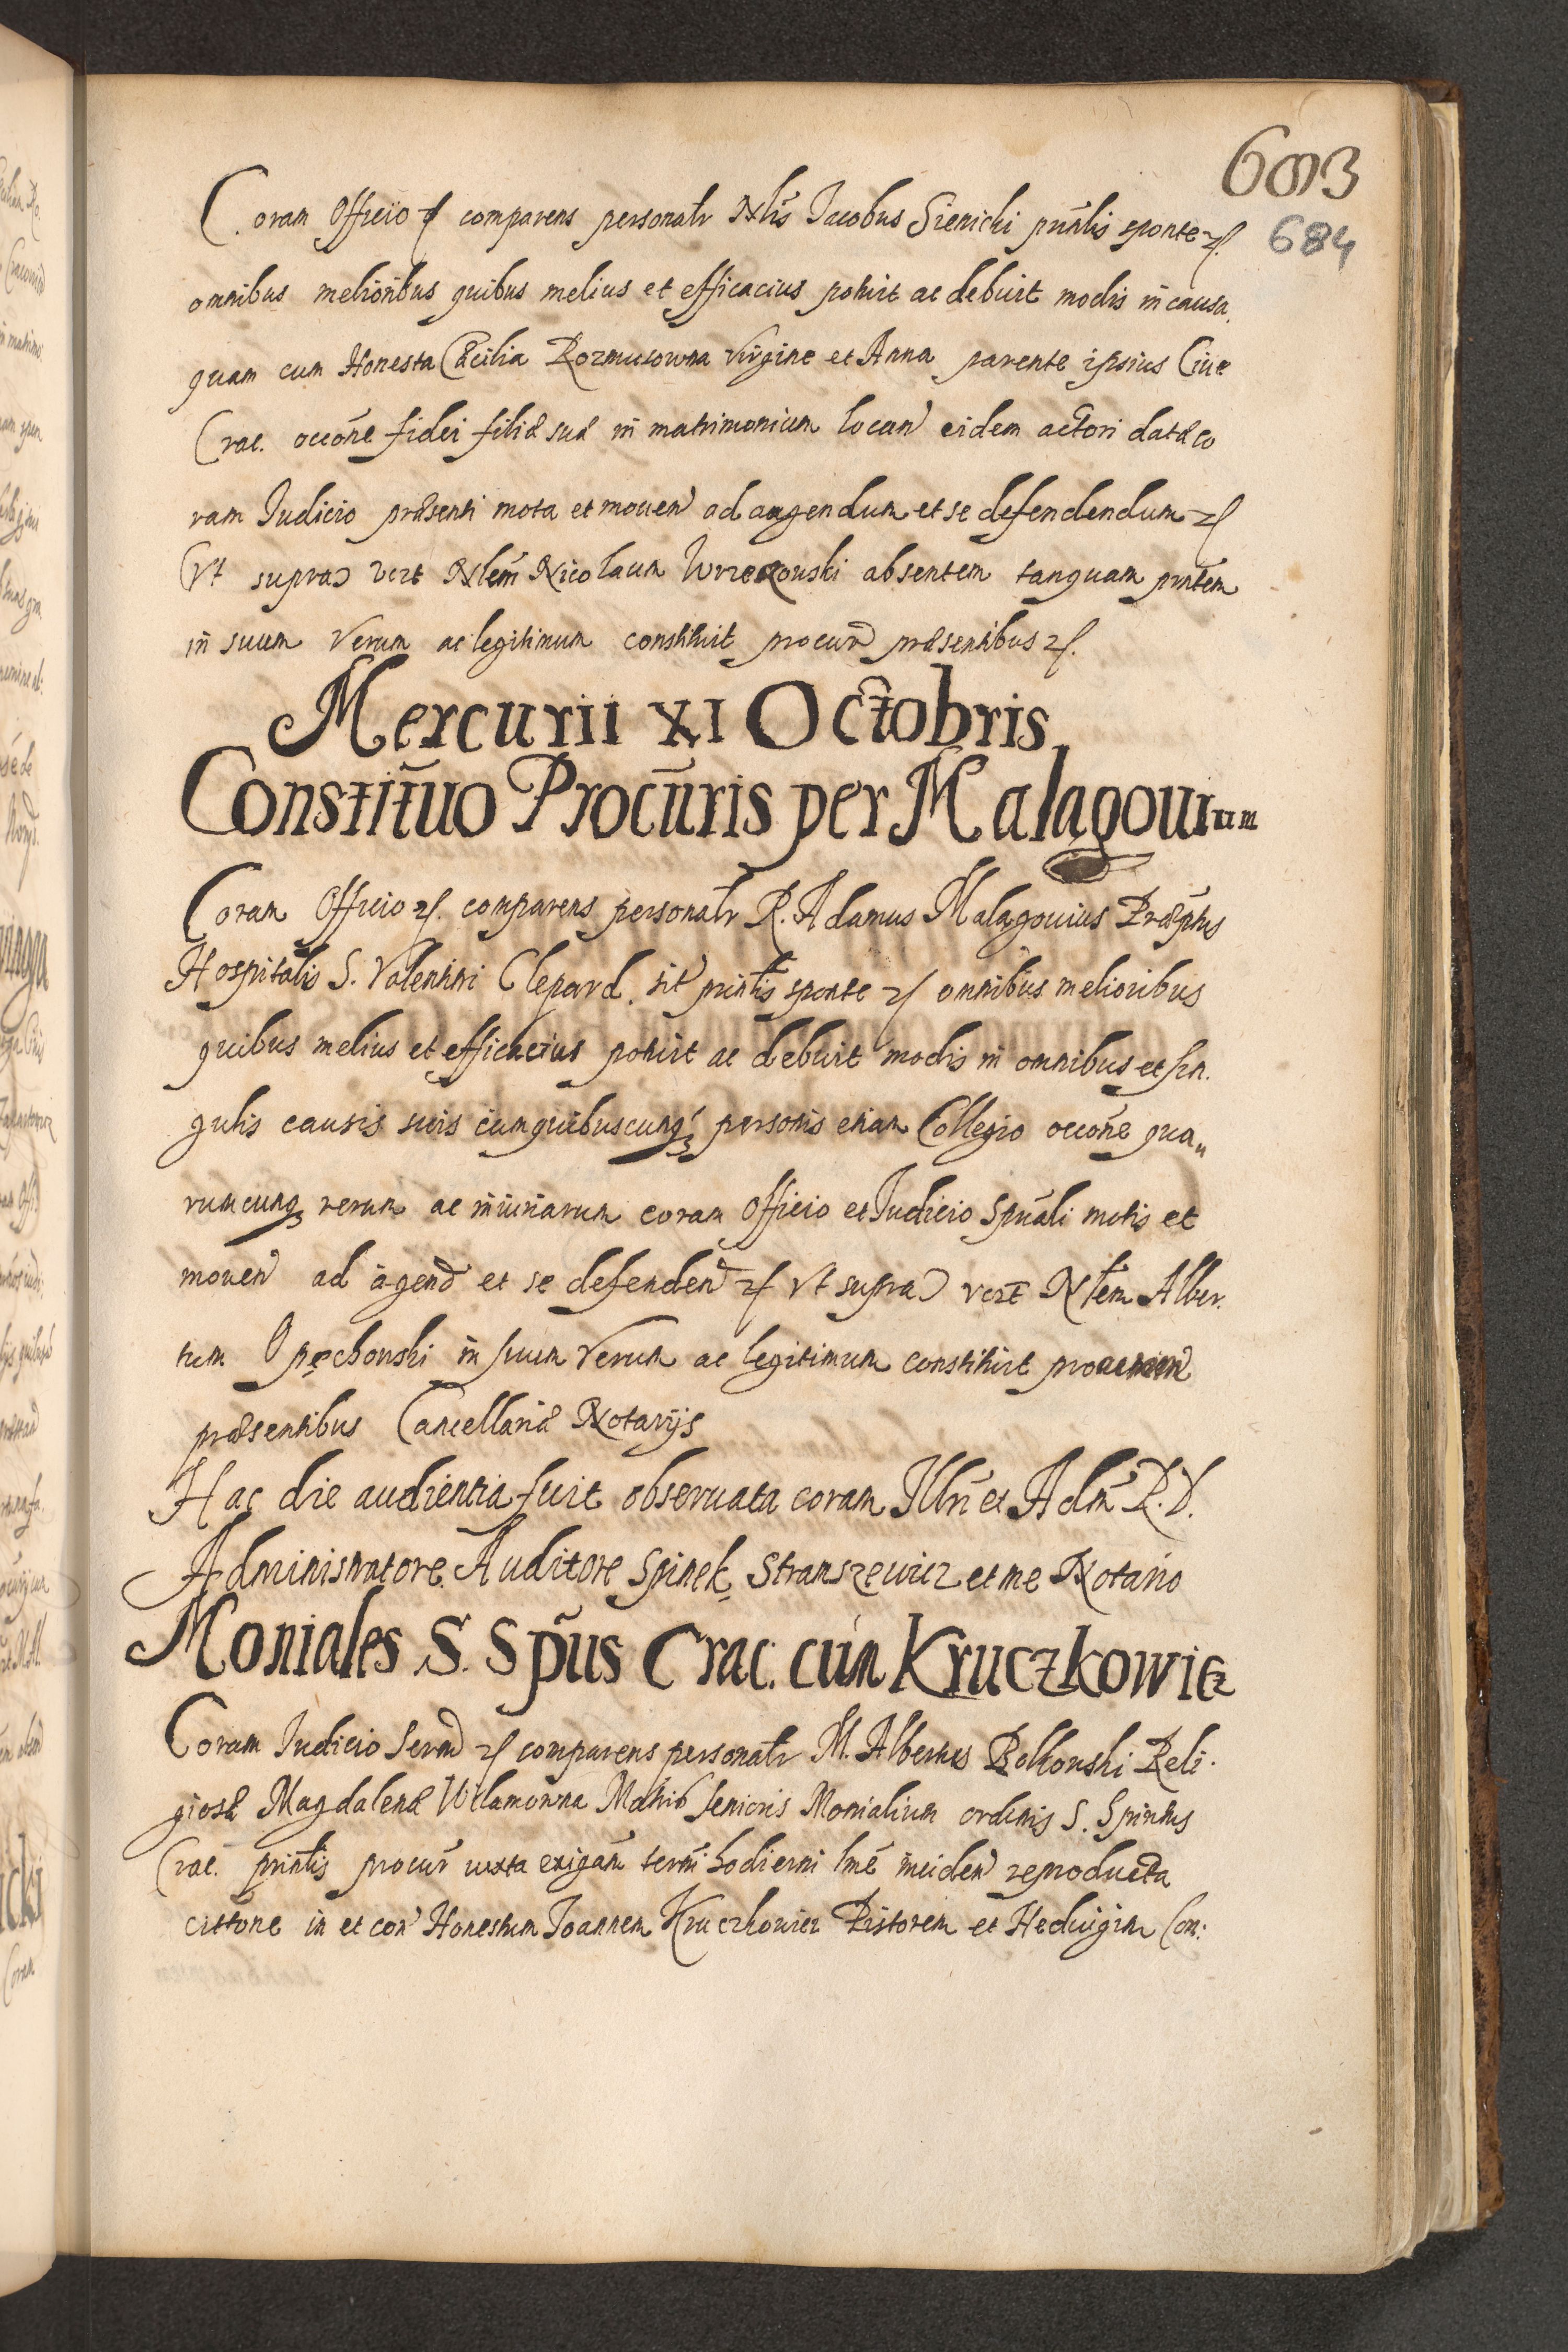 6003
684
Coram Officio etc comparens personalr Nlis Jacobus Sienicki prñlis sponte etc.
omnibus melioribus quibus melius et efficacius potuit ac debuit modis in causa
quam cum Honesta Cæcilia Rozmusowna Virgine et Anna parente ipsius Ciue
Crac. occõne fidei filiæ suæ in matrimonium locan eidem actori datæ co
ram Judicio præsenti mota et mouen ad aagendum et se defendendum etc
Vt supra vert Nlem Nicolaum absentem tanquam prntem
in suum Verum ac legitimum constituit procur præsentibus etc.
Mercurii XI Octobris
Constitũuo Procũris per Malagouium
Coram Officio etc. comparens personalr R. Adamus Malagouius Præptus
Hospitalis S. Valentini Clepard. sit prñtis sponte etc omnibus melioribus
quibus melius et efficacius potuit ac debuit modis in omnibus et sin.
gulis causis suis cum quibuscunq personis etiam Collegio occõne qua
rumcunq rerum ac iniuriarum coram Officio et Judicio Spuali motis et
mouen ad agend et se defenden etc Vt supra vert Nlem Alber.
tum Opęchowski in suum Verum ac legitimum constituit
præsentibus Cancellariæ Notarijs
Hac die audientia fuit obseruata coram Illri et Adm R.D.
Administratore Auditore Spinek Stranszewicz et me Notario
Moniales S. Spũs Crac. cum Kruczkowicz
Coram Judicio Seruad etc comparens personalr M. Albertus Bolkowski Reli.
giosæ Magdalenæ Wilamowna Matris Senioris Monialium ordinis S. Spiritus
Crac. printis procur iuxta exigam termi hodierni lmē inciden reproducta
cittõne in et con Honestum Joannem Kruczkowicz Pistorem et Heduigim Con: